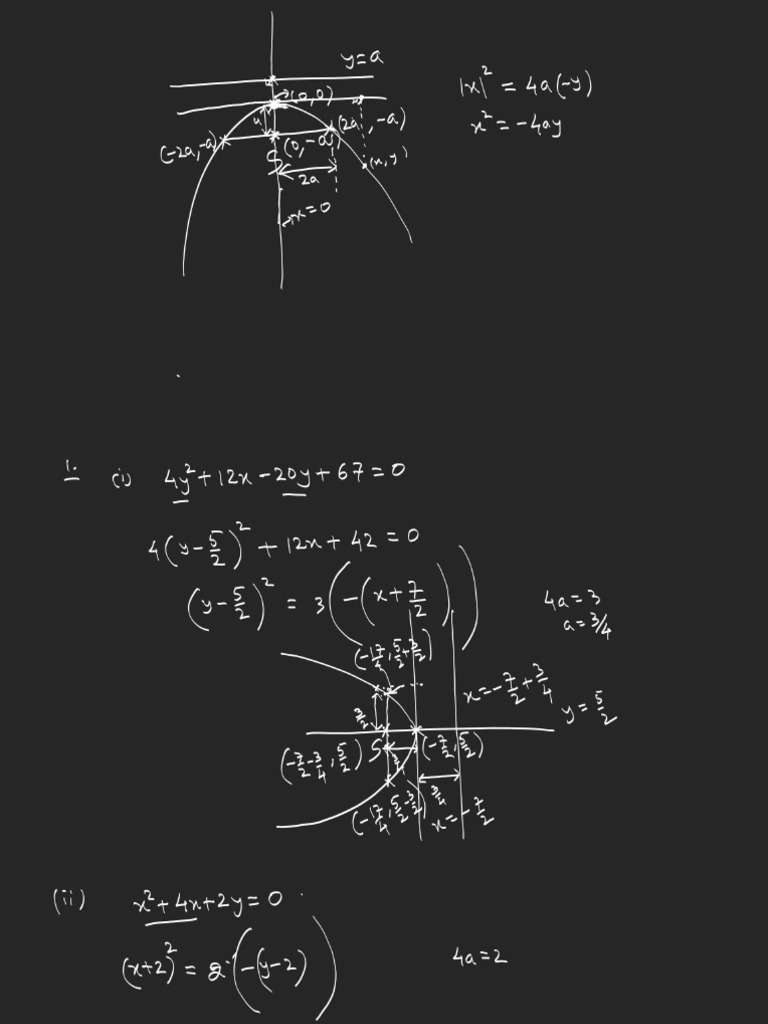 y=a
(0,0)
|x|² = 4a(-y)
x² = -4ay
a
(2a, -a)
(-2a,-a)
(0,-a)
S
(x,y)
2a
x=0
1. (i) 4y²+12x-20y+67=0
4(y-5/2)² + 12x + 42 = 0
(y-5/2)² = 3(-(x+7/2))
4a=3
a=3/4
(-17/4, 5/2+3/2)
x=-7/2+3/4
y=5/2
3/2
(-7/2-3/4, 5/2) S
(-7/2, 5/2)
3/4
(-17/4, 5/2-3/2)
x=-7/2
(ii) x²+4x+2y=0
(x+2)² = 2(-(y-2))
4a=2